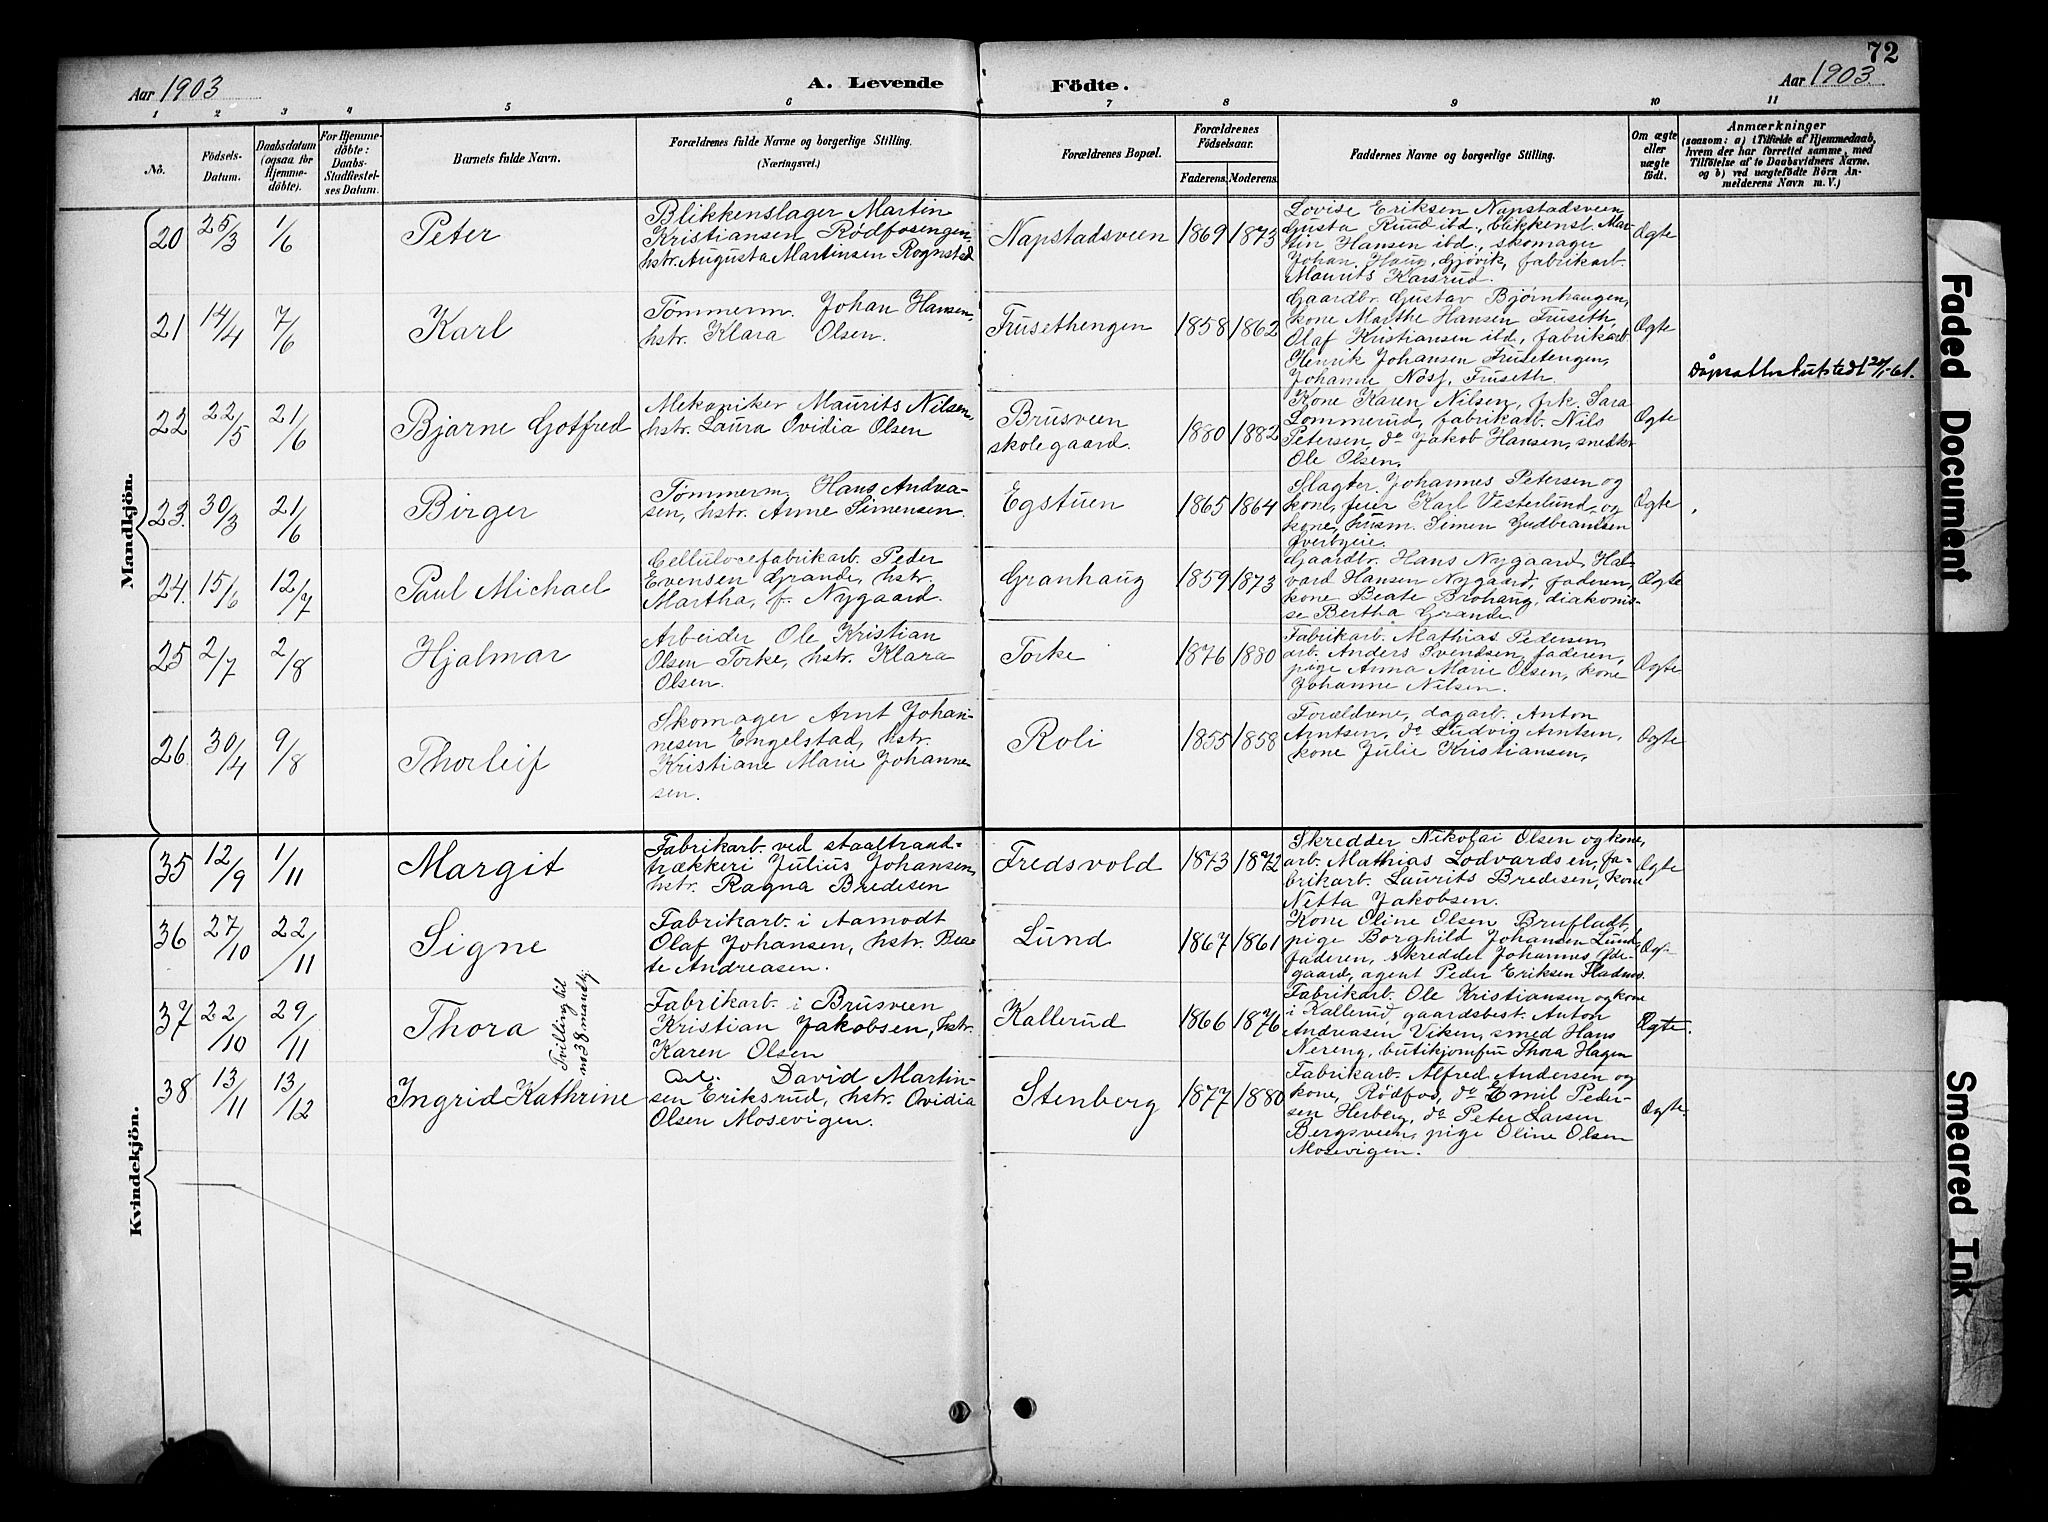 72
Aar 1903
A. Levende Födte.
Aar 1903
1 2 3 4 5 6 7 8 9 10 11
No.
Födsels-
Datum.
Daabsdatum
(ogsaa for
Hjemme-
döbte).
For Hjemme-
döbte:
Daabs-
Stadfæstel-
ses Datum.
Barnets fulde Navn.
Forældrenes fulde Navne og borgerlige Stilling.
(Næringsvei.)
Forældrenes Bopæl.
Forældrenes
Födselsaar.
Faderens. Moderens.
Faddernes Navne og borgerlige Stilling.
Om ægte
eller
uægte
født.
Anmærkninger
(saasom: a) i Tilfælde af Hjemmedaab,
hvem der har forrettet samme, med
Tilføielse af to Daabsvidners Navne.
og b) ved uægtefödte Börn An-
melderens Navn m. V.)
Mandkjön.
20 25/3 1/6 Peter
Blikkenslager Martin
Kristiansen Rødfosengen,
hstr. Augusta Martinsen Rognstad
Napstadsveen 1869 1873
Lovise Eriksen Napstadsveen
Gusta Ruud ibd., blikkensl. Mar-
tin Hansen ibd., skomager
Johan Haug, Gjövik, fabrikarb.
Maurits Karsrud.
Ægte
21 14/4 7/6 Karl
Tømmerm. Johan Hansen,
hstr. Klara Olsen.
Frusethengen 1858 1862
Gaardbr. Gustav Bjørnhaugen,
kone Marthe Hansen Fruseth,
Olaf Kristiansen ibd, fabrikarb.
Henrik Johansen Frusetengen,
Johanne Nøsf. Fruseth.
Ægte
22 22/5 21/6 Bjarne Gotfred
Mekaniker Maurits Nilsen,
hstr. Laura Ovidia Olsen
Brusveen
skolegaard. 1880 1882
Kone Karen Nilsen, frk. Sara
Lommerud, fabrikarb. Nils
Petersen, do Jakob Hansen, snedker
Ole Olsen.
Ægte
23. 30/3 21/6 Birger
Tømmerm. Hans Andrea-
sen, hstr. Anne Simensen.
Egstuen 1865 1864
Slagter Johannes Petersen og
kone, feier Karl Vesterlund og
kone, husm. Simen Gudbrandsen
Øverbyeie.
Ægte
24. 15/6 12/7 Paul Michael
Cellulosefabrikarb. Peder
Evensen Grande, hstr.
Martha, f. Nygaard.
Granhaug 1859 1873
Gaardbr. Hans Nygaard, Hal-
vard Hansen Nygaard, faderen,
kone Beate Brohaug, diakonis-
se Bertha Grande
Ægte
25 2/7 2/8 Hjalmar
Arbeider Ole Kristian
Olsen Torke, hstr. Klara
Olsen.
Torke 1876 1880
Fabrikarb. Mathias Pedersen,
arb. Anders Svendsen, faderen,
pige Anna Marie Olsen, kone
Johanne Nilsen.
Ægte
26 30/4 9/8 Thorleif
Skomager Arnt Johan-
nesen Engelstad, hstr.
Kristiane Marie Johanne
sen.
Roli 1855 1858
Forældrene, dagarb. Anton
Arntsen, do Ludvig Arntsen,
kone Julie Kristiansen,
Ægte
Kvindekjön.
35 12/9 1/11 Margit
Fabrikarb. ved staaltraad-
trækkeri Julius Johansen,
hstr. Ragna Bredesen
Fredsvold 1873 1872
Skredder Nikolai Olsen og kone,
arb. Mathias Lodvardsen, fa-
brikarb. Laurits Bredesen, kone
Netta Jakobsen.
Ægte
36 27/10 22/11 Signe
Fabrikarb. i Aamodt
Olaf Johansen, hstr. Bea
te Andreasen.
Lund 1867 1861
Kone Oline Olsen Brufladt,
pige Borghild Johansen Lund
faderen, skredder Johannes Øde-
gaard, agent Peder Eriksen Fladmo.
Æg-
37 22/10 29/11 Thora
Tvilling til
no 38 mandkj.
Fabrikarb. i Brusveen
Kristian Jakobsen, hstr.
Karen Olsen
Kallerud 1866 1876
Fabrikarb. Ole Kristiansen og kone
i Kallerud, gaardsbest. Anton
Andreasen Viken, smed Hans
Nereng, butikjomfru Thora Hagen
Ægte.
38 13/11 13/12 Ingrid Kathrine
David Martin-
sen Eriksrud, hstr. Ovidia
Olsen Mosevigen.
Stenberg 1877 1880
Fabrikarb. Alfred Andersen og
kone, Rødfos, do Emil Peder-
sen Herberg, do Peter Larsen
Bergsveen, pige Oline Olsen
Mosevigen.
Ægte.
Faded Document
Smeared Ink